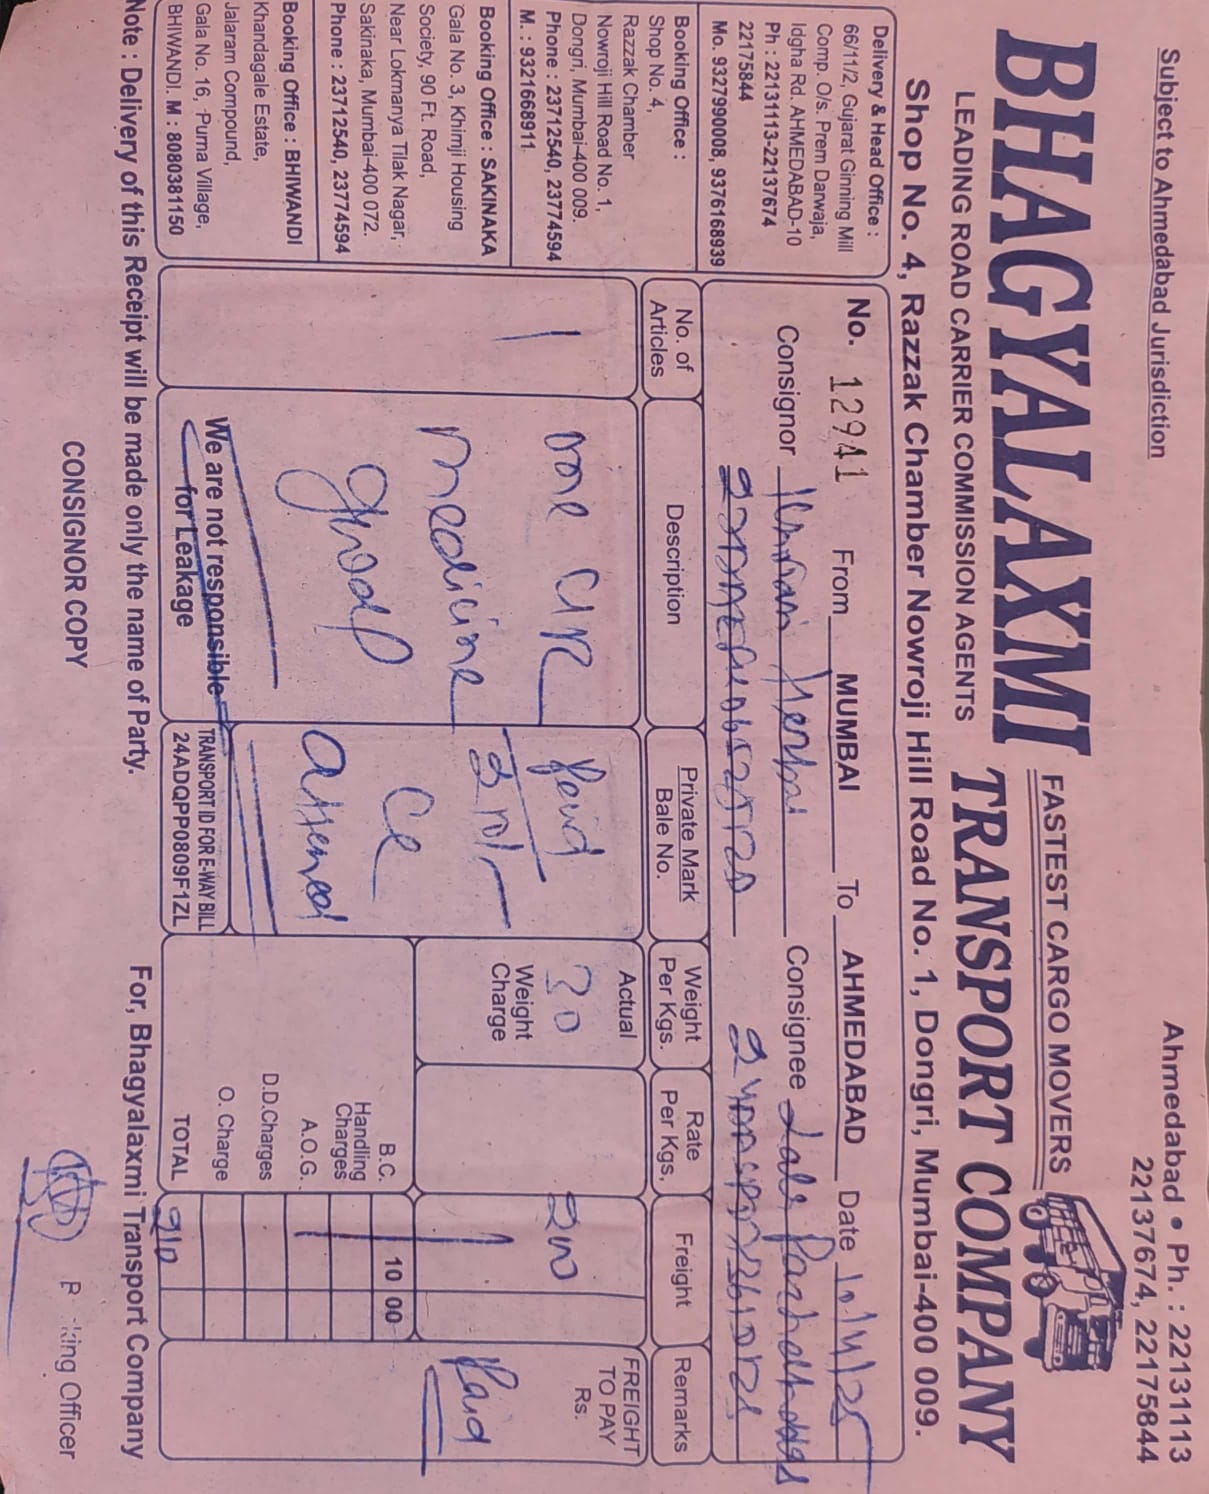 Subject to Ahmedabad Jurisdiction
Ahmedabad • Ph. : 22131113
22137674, 22175844
FASTEST CARGO MOVERS
BHAGYALAXMI TRANSPORT COMPANY
LEADING ROAD CARRIER COMMISSION AGENTS
Shop No. 4, Razzak Chamber Nowroji Hill Road No. 1, Dongri, Mumbai-400 009.
Delivery & Head Office :
66/11/2, Gujarat Ginning Mill
Comp. O/s. Prem Darwaja,
Idgha Rd. AHMEDABAD-10
Ph : 22131113-22137674
22175844
Mo. 9327990008, 9376168939
Booking Office :
Shop No. 4,
Razzak Chamber
Nowroji Hill Road No. 1,
Dongri, Mumbai-400 009.
Phone : 23712540, 23774594
M. : 9321668911
Booking Office : SAKINAKA
Gala No. 3, Khimji Housing
Society, 90 Ft. Road,
Near Lokmanya Tilak Nagar,
Sakinaka, Mumbai-400 072.
Phone : 23712540, 23774594
Booking Office : BHIWANDI
Khandagale Estate,
Jalaram Compound,
Gala No. 16, Purna Village,
BHIWANDI. M : 8080381150
No. 12941 From MUMBAI To AHMEDABAD Date
Consignor Consignee
No. of Articles
Description
Private Mark
Bale No.
Weight Per Kgs.
Rate Per Kgs.
Freight
Remarks
1
one
medicine
Paid
210/-
Attached
We are not responsible
for Leakage
TRANSPORT ID FOR E-WAY BILL
24ADQPP0809F1ZL
Actual
20
Weight
Charge
200
FREIGHT
TO PAY
Rs.
Paid
B.C. 10 00
Handling
Charges
A.O.G.
D.D.Charges
O. Charge
TOTAL 210
Note : Delivery of this Receipt will be made only the name of Party.
For, Bhagyalaxmi Transport Company
CONSIGNOR COPY
Officer